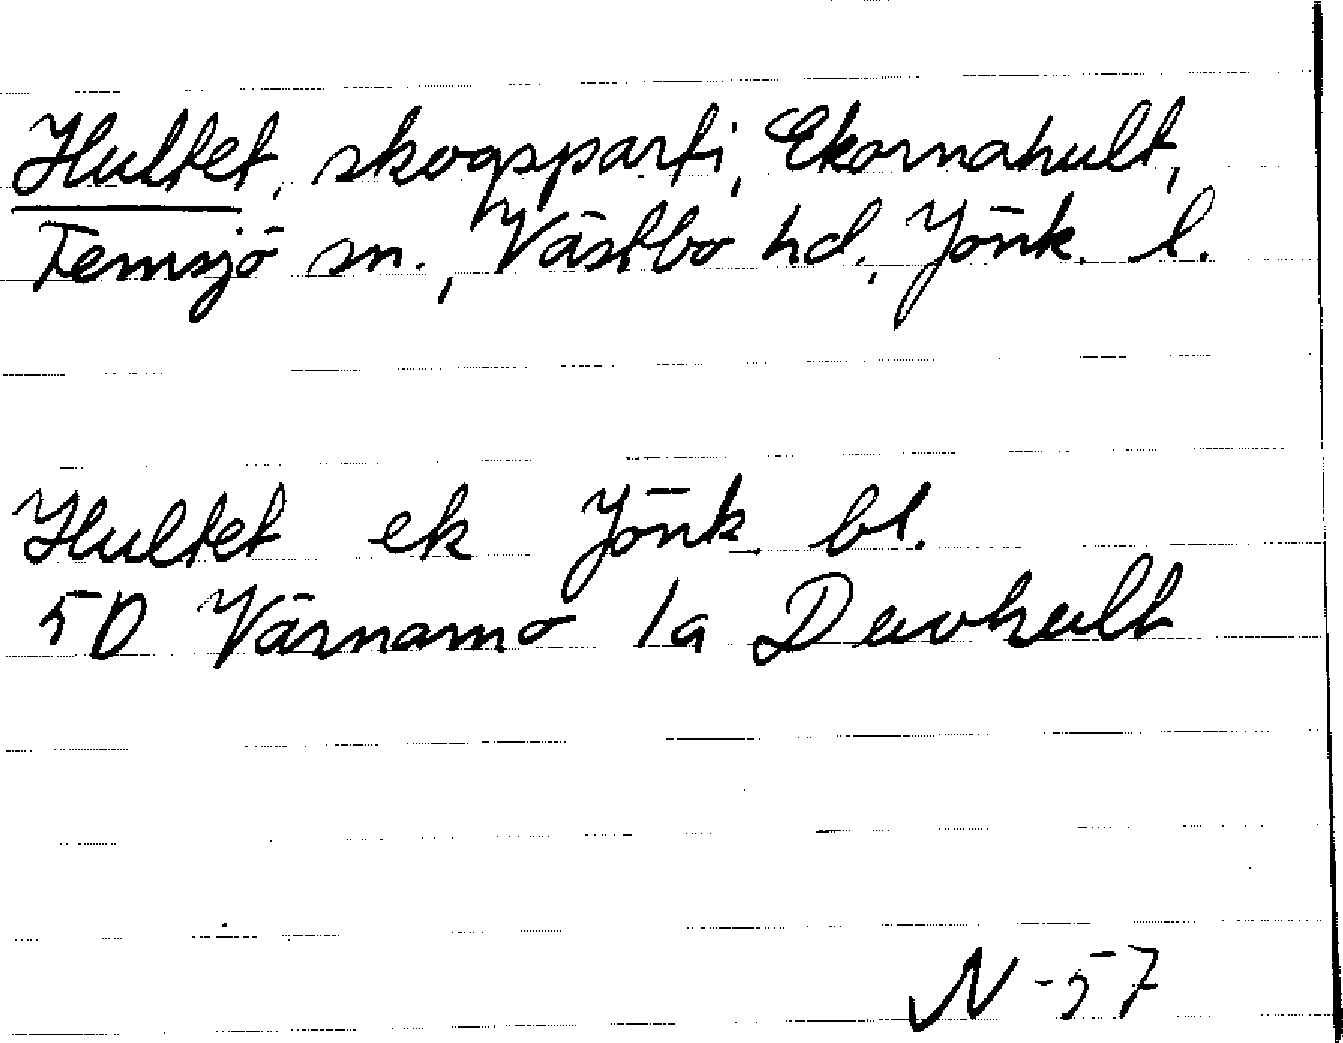 Hultet, skogsparti, Ekornahult,
Femsjö sn., Västbo hd., Jönk. l.
Hultet ek Jönk. bl.
5D Värnamo 1a Duvhult
N -57